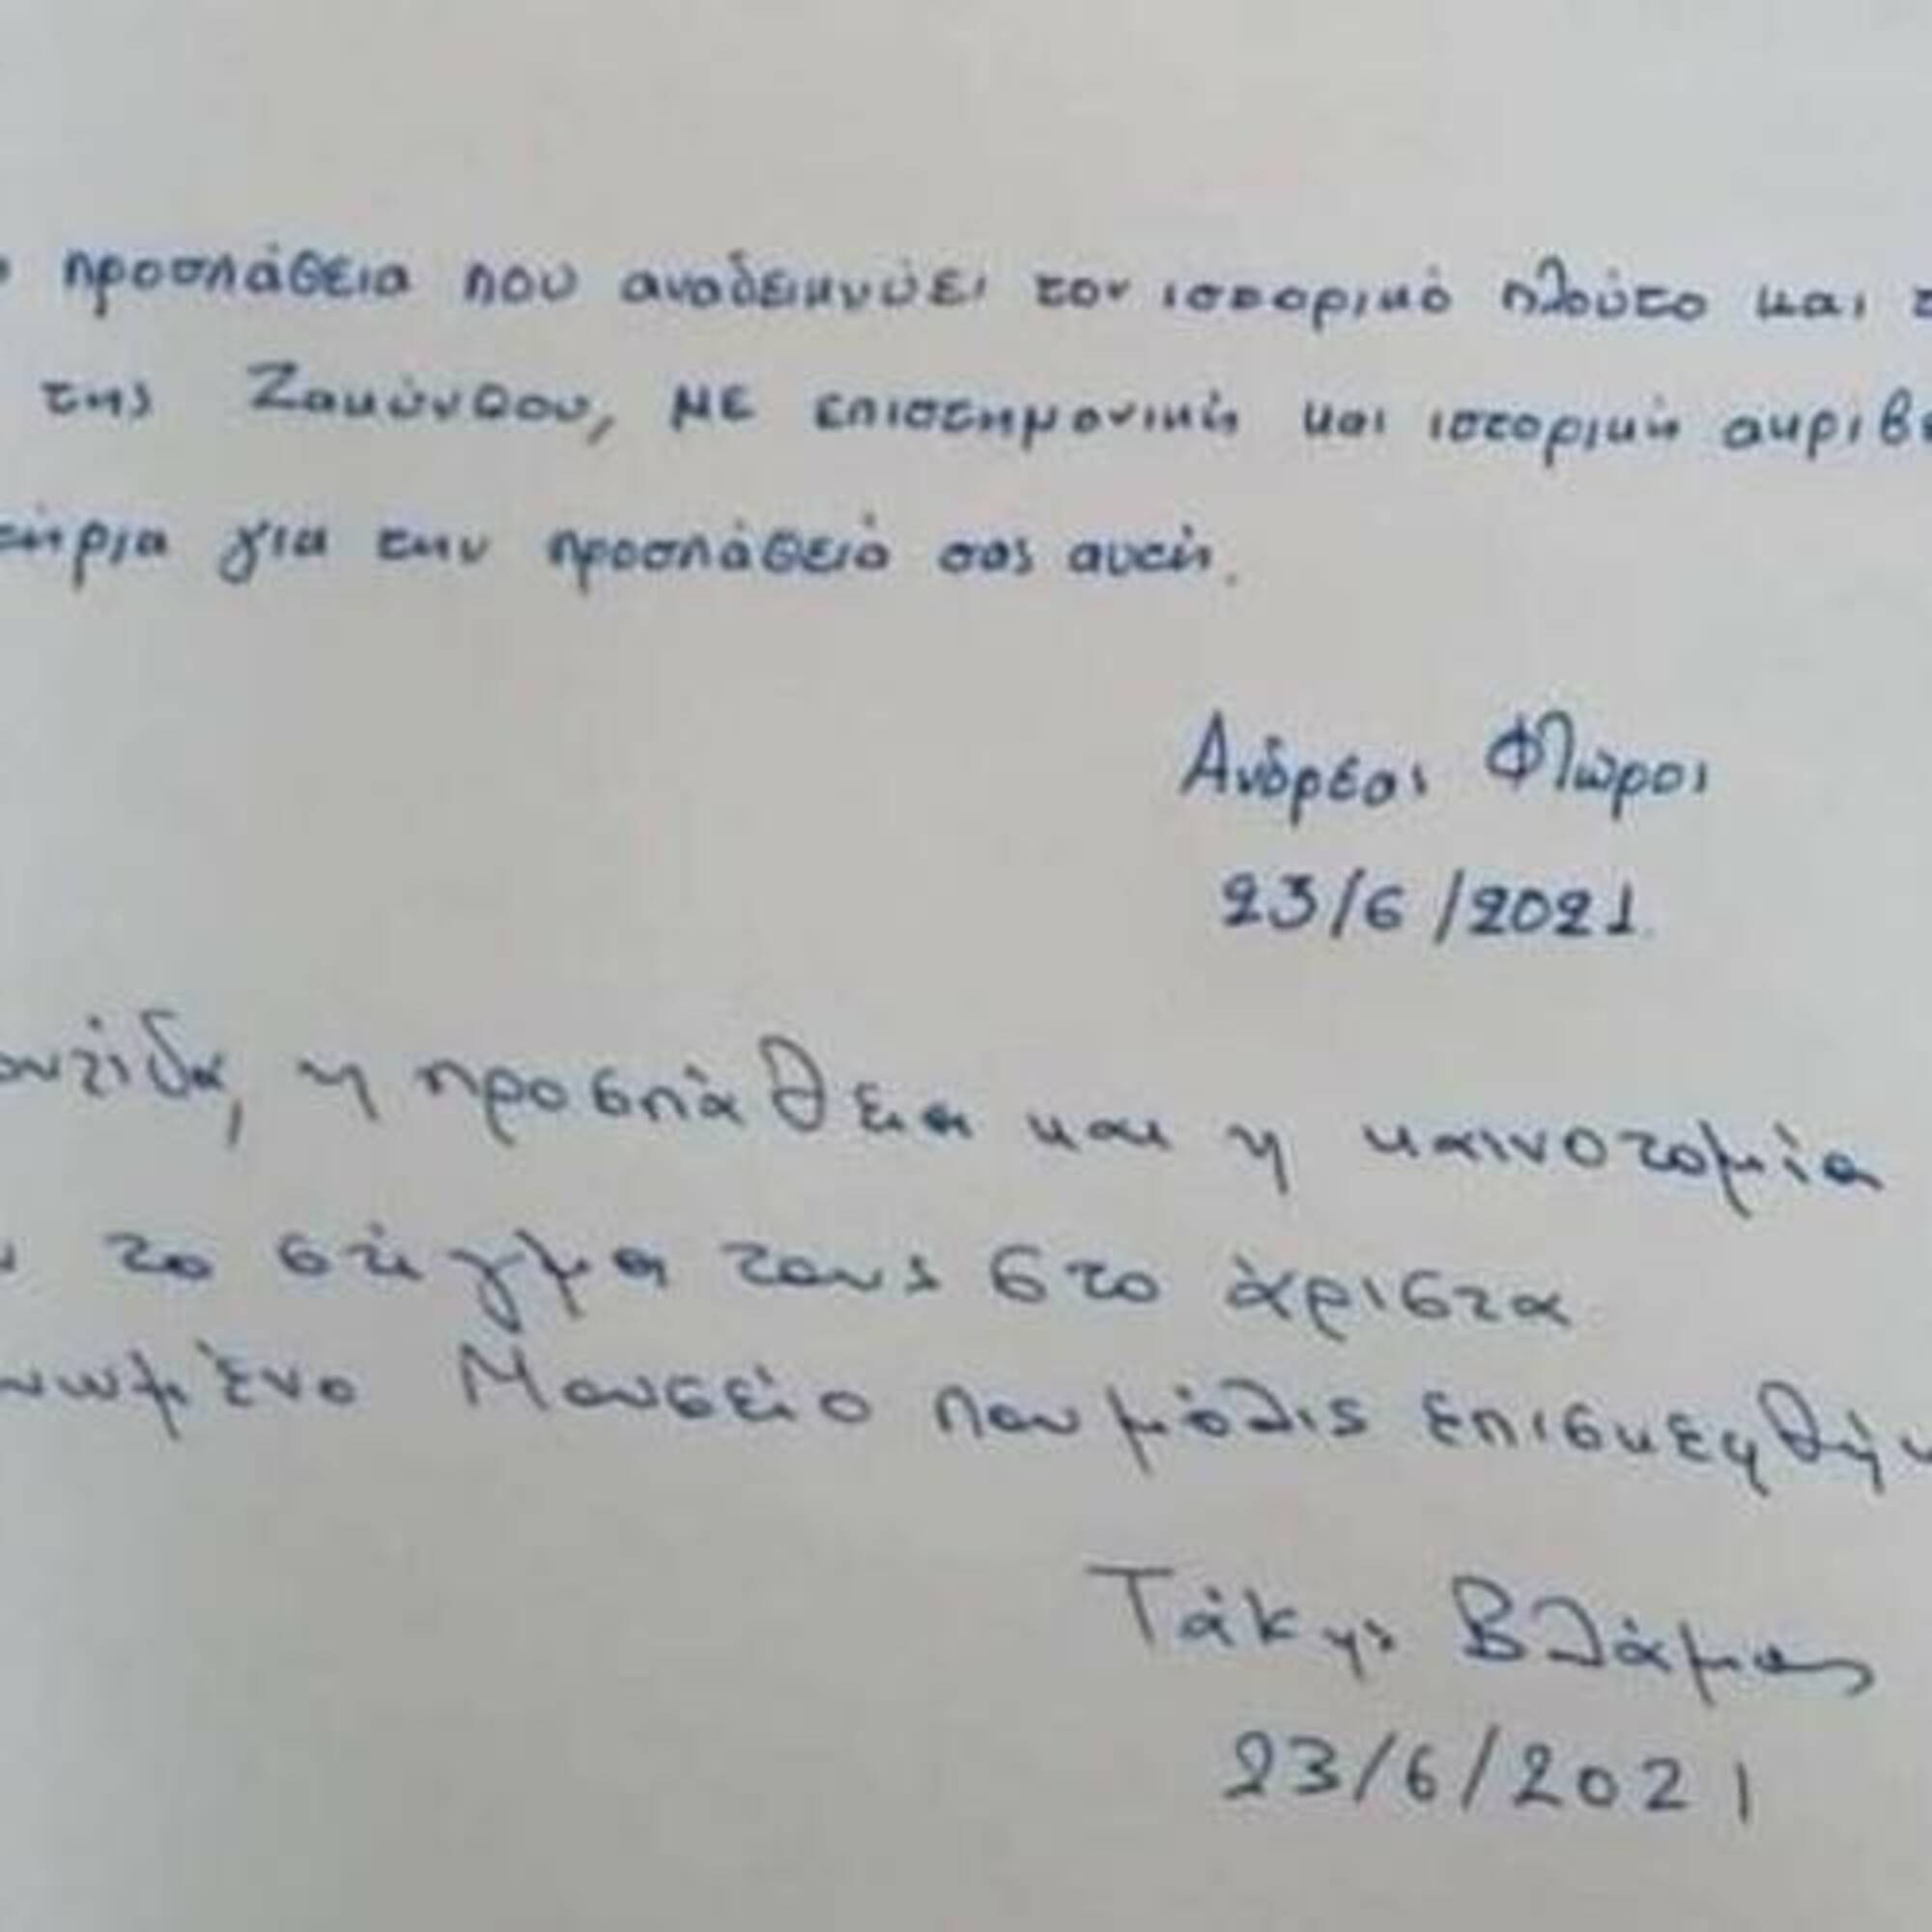 προσπάθεια που αναδεικνύει τον ιστορικό πλούτο και
της Ζακύνθου, με επιστημονική και ιστορική ακρίβε
τήρια για την προσπάθειά σας αυτή.
Ανδρέας Φλώρος
23/6/2021.
οντίδα, η προσπάθεια και η καινοτομία
το στίγμα τους στο άριστα
νωμένο Μουσείο που μόλις επισκεφθήκ
Τάκης Βλάμης
23/6/2021